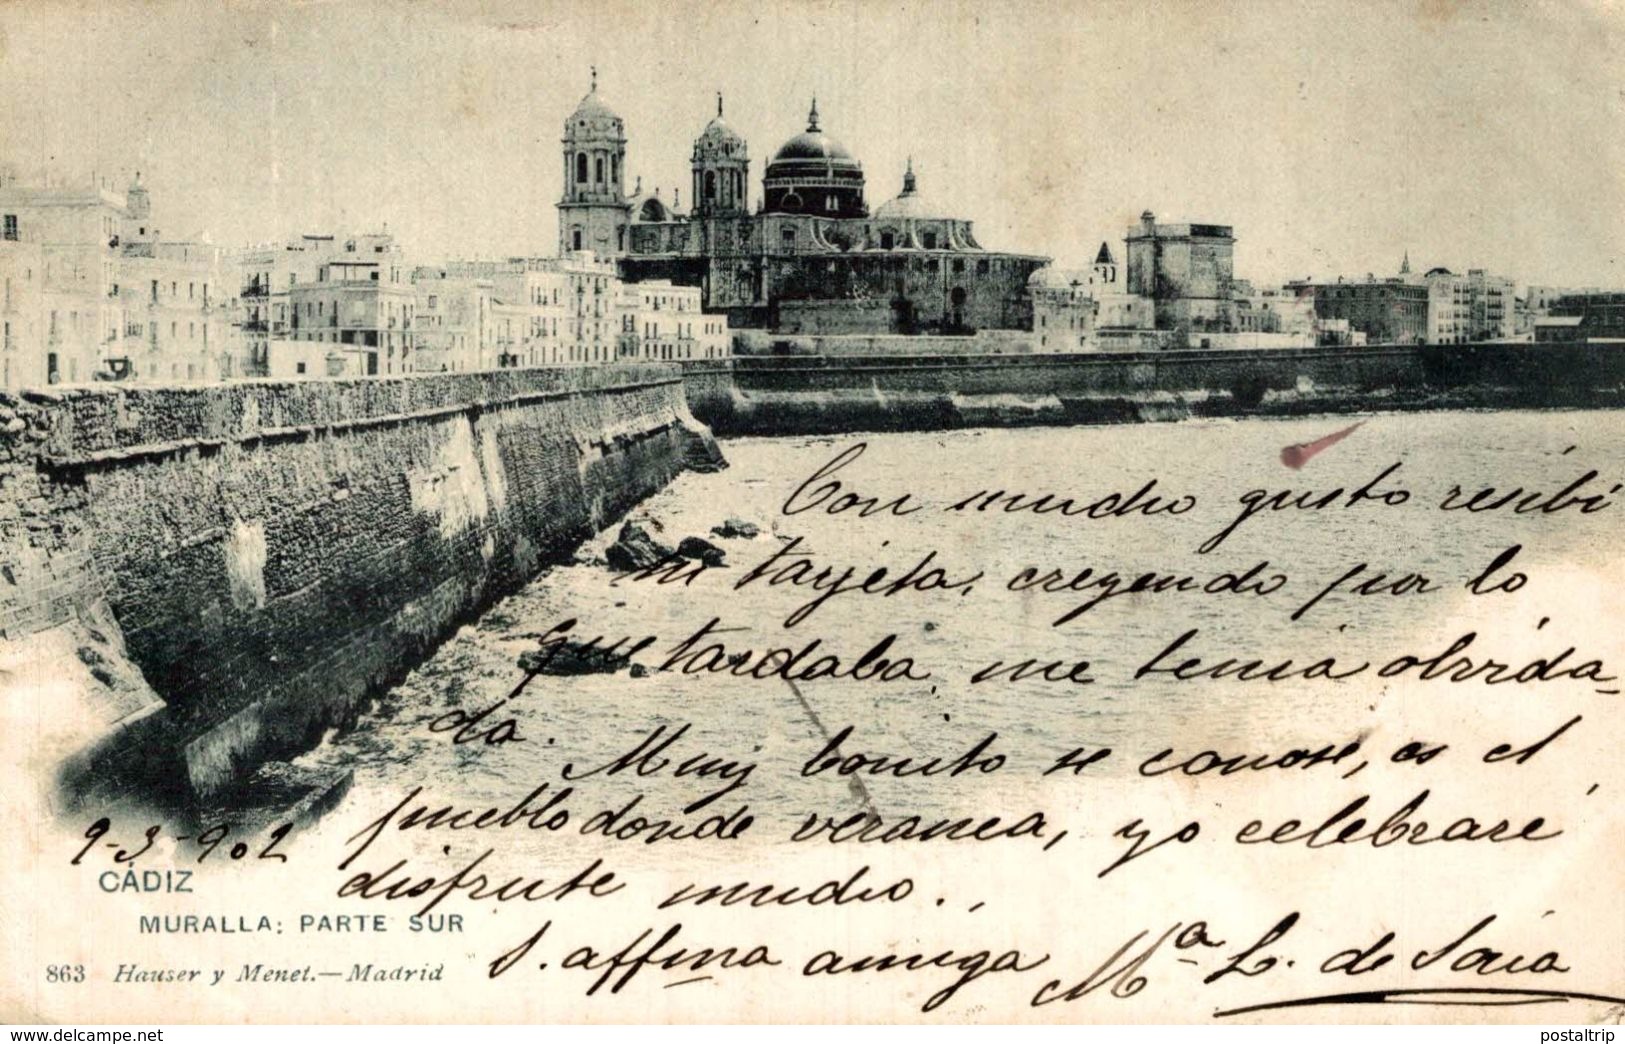 Con mucho gusto resibi
tu tarjeta, creyendo por lo
que tardaba, me tenia olvida-
da.
Muy bonito se conose, es el
pueblo donde veranea, yo celebraré
disfrute mucho.
9-3-902
CÁDIZ
MURALLA: PARTE SUR
S. affma amiga
Mª L. de Soria
863 Hauser y Menet.—Madrid
www.delcampe.net
postaltrip